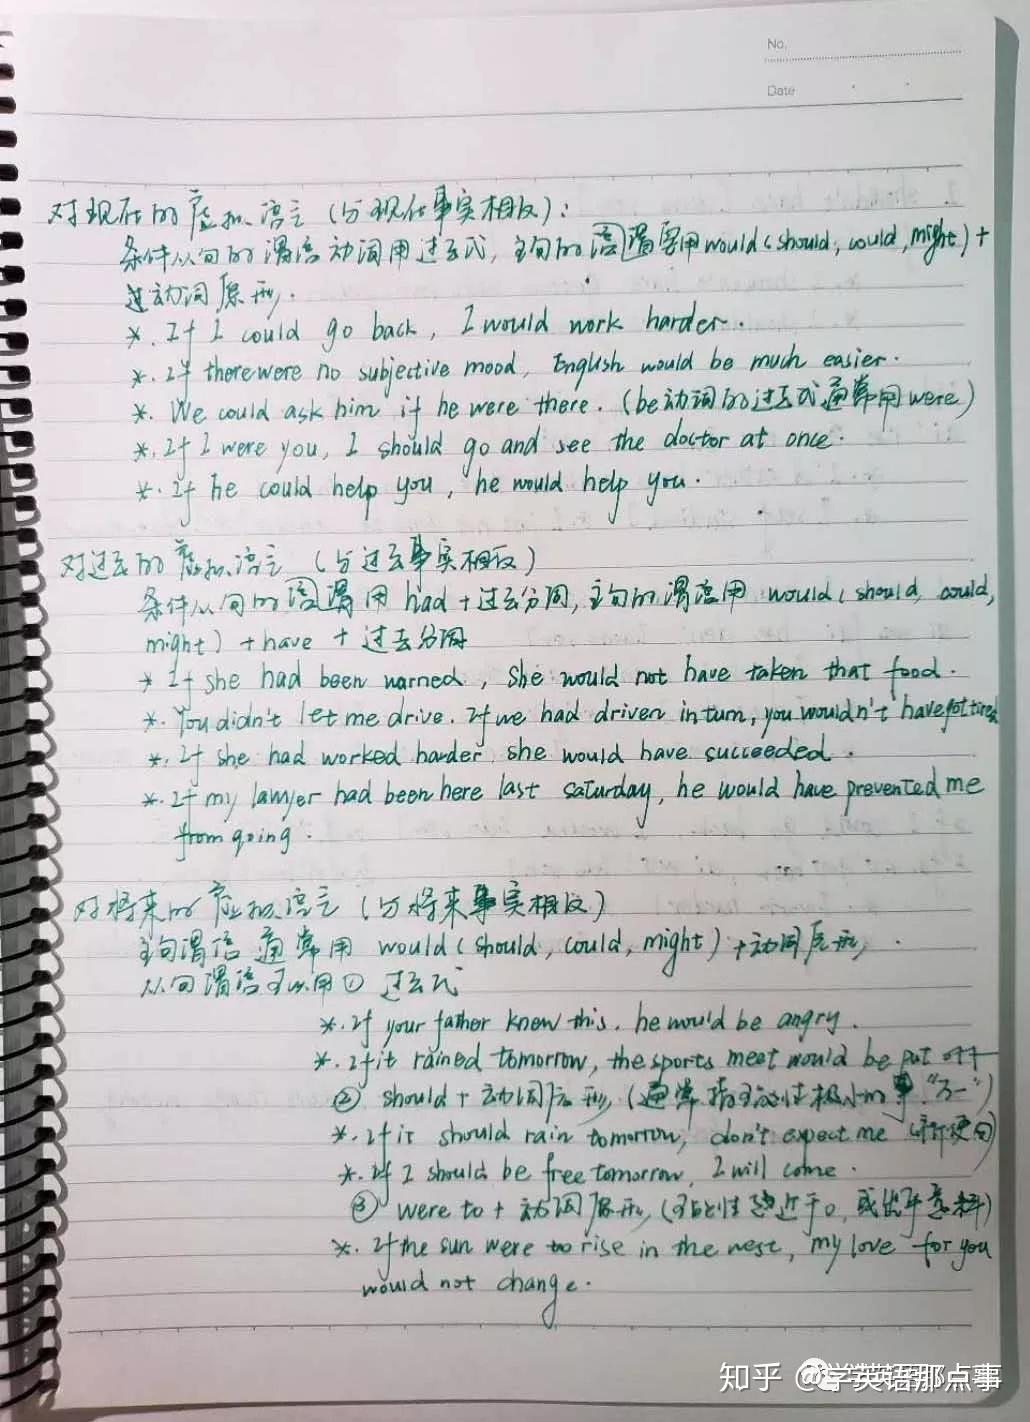 No.
Date
对现在的虚拟语言(与现在事实相反):
条件从句的谓语动词用过去式,主句的谓要用would(should, could, might)+
动词原形.
*. If I could go back, I would work harder.
*. If there were no subjective mood, English would be much easier.
*. We could ask him if he were there. (be动词的过去式通常用were)
*. If I were you, I should go and see the doctor at once.
*. If he could help you, he would help you.
对过去的虚拟语言(与过去事实相反)
条件从句的谓用had+过去分词,主句的谓语用 would(should, could,
might)+have+过去分词
* If she had been warned, she would not have taken that food.
*. You didn't let me drive. If we had driven in turn, you wouldn't have got tired
*. If she had worked harder she would have succeeded.
*. If my lawyer had been here last saturday, he would have prevented me
from going.
对将来的虚拟语言(与将来事实相反)
主句谓语通常用 would(should, could, might)+动词原形,
从句谓语可以用① 过去式
*. If your father knew this. he would be angry.
*. If it rained tomorrow, the sports meet would be put off
② should+动词原形,(通常指可能性极小的事"万一")
*. If it should rain tomorrow, don't expect me (祈使句)
*. If I should be free tomorrow, I will come.
③ were to+动词原形,(可能性趋近于0,或出乎意料)
*. If the sun were to rise in the west, my love for you
would not change.
知乎 @学英语那点事